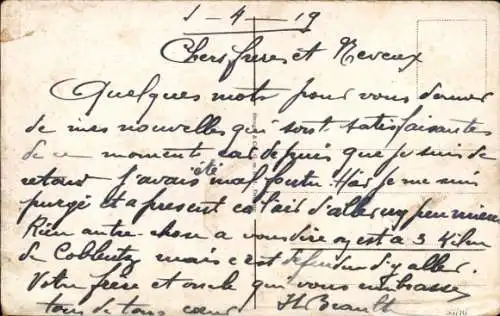 1 - 4 - 19
Chers frères et Neveux
Quelques mots pour vous donner
de mes nouvelles qui sont satisfaisantes
de ce moment car depuis que je suis de
retour j'avais été mal foutu. Hier je me suis
purgé et a present ca l'air d'aller un peu mieux
Rien autre chose a vous dire on est a 3 Kilm
de Coblentz mais c'est defendu d'y aller.
Votre frère et oncle qui vous embrasse
tous de tous coeur H Beault